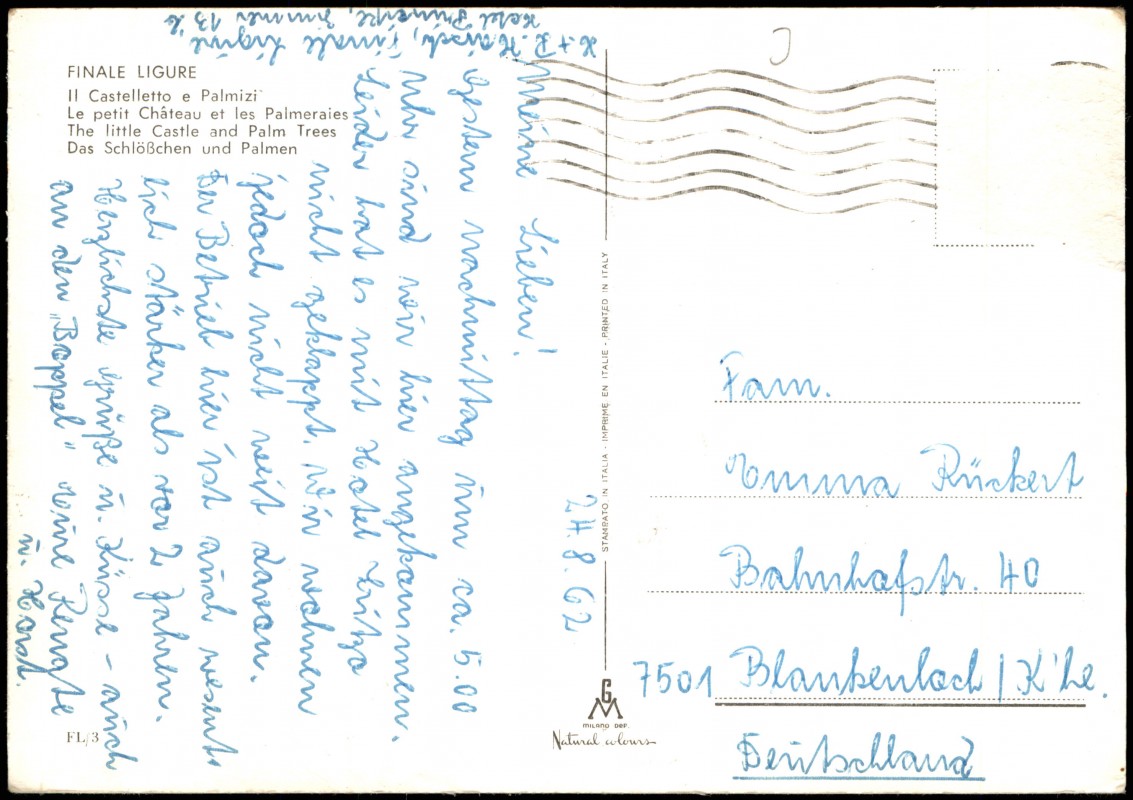 FINALE LIGURE
Il Castelletto e Palmizi
Le petit Château et les Palmeraies
The little Castle and Palm Trees
Das Schlößchen und Palmen
H. + R. Finale Ligure,
Hotel Zimmer 136
24.8.62
Meine Lieben!
Gestern nachmittag um ca. 5.00
Uhr sind wir hier angekommen.
Leider hat es mit Hotel
nicht geklappt. Wir wohnen
jedoch nicht weit davon.
Der Betrieb hier ist auch wesent-
lich stärker als vor 2 Jahren.
Herzlichste Grüße u. Küsse – auch
an den "Boppel" Eure Renate
u. Horst.
STAMPATO IN ITALIA - IMPRIMÉ EN ITALIE - PRINTED IN ITALY
Fam.
Emma Rückert
Bahnhofstr. 40
7501 Blankenloch / K'he.
Deutschland
GM
MILANO DEP.
Natural colours
FL/3